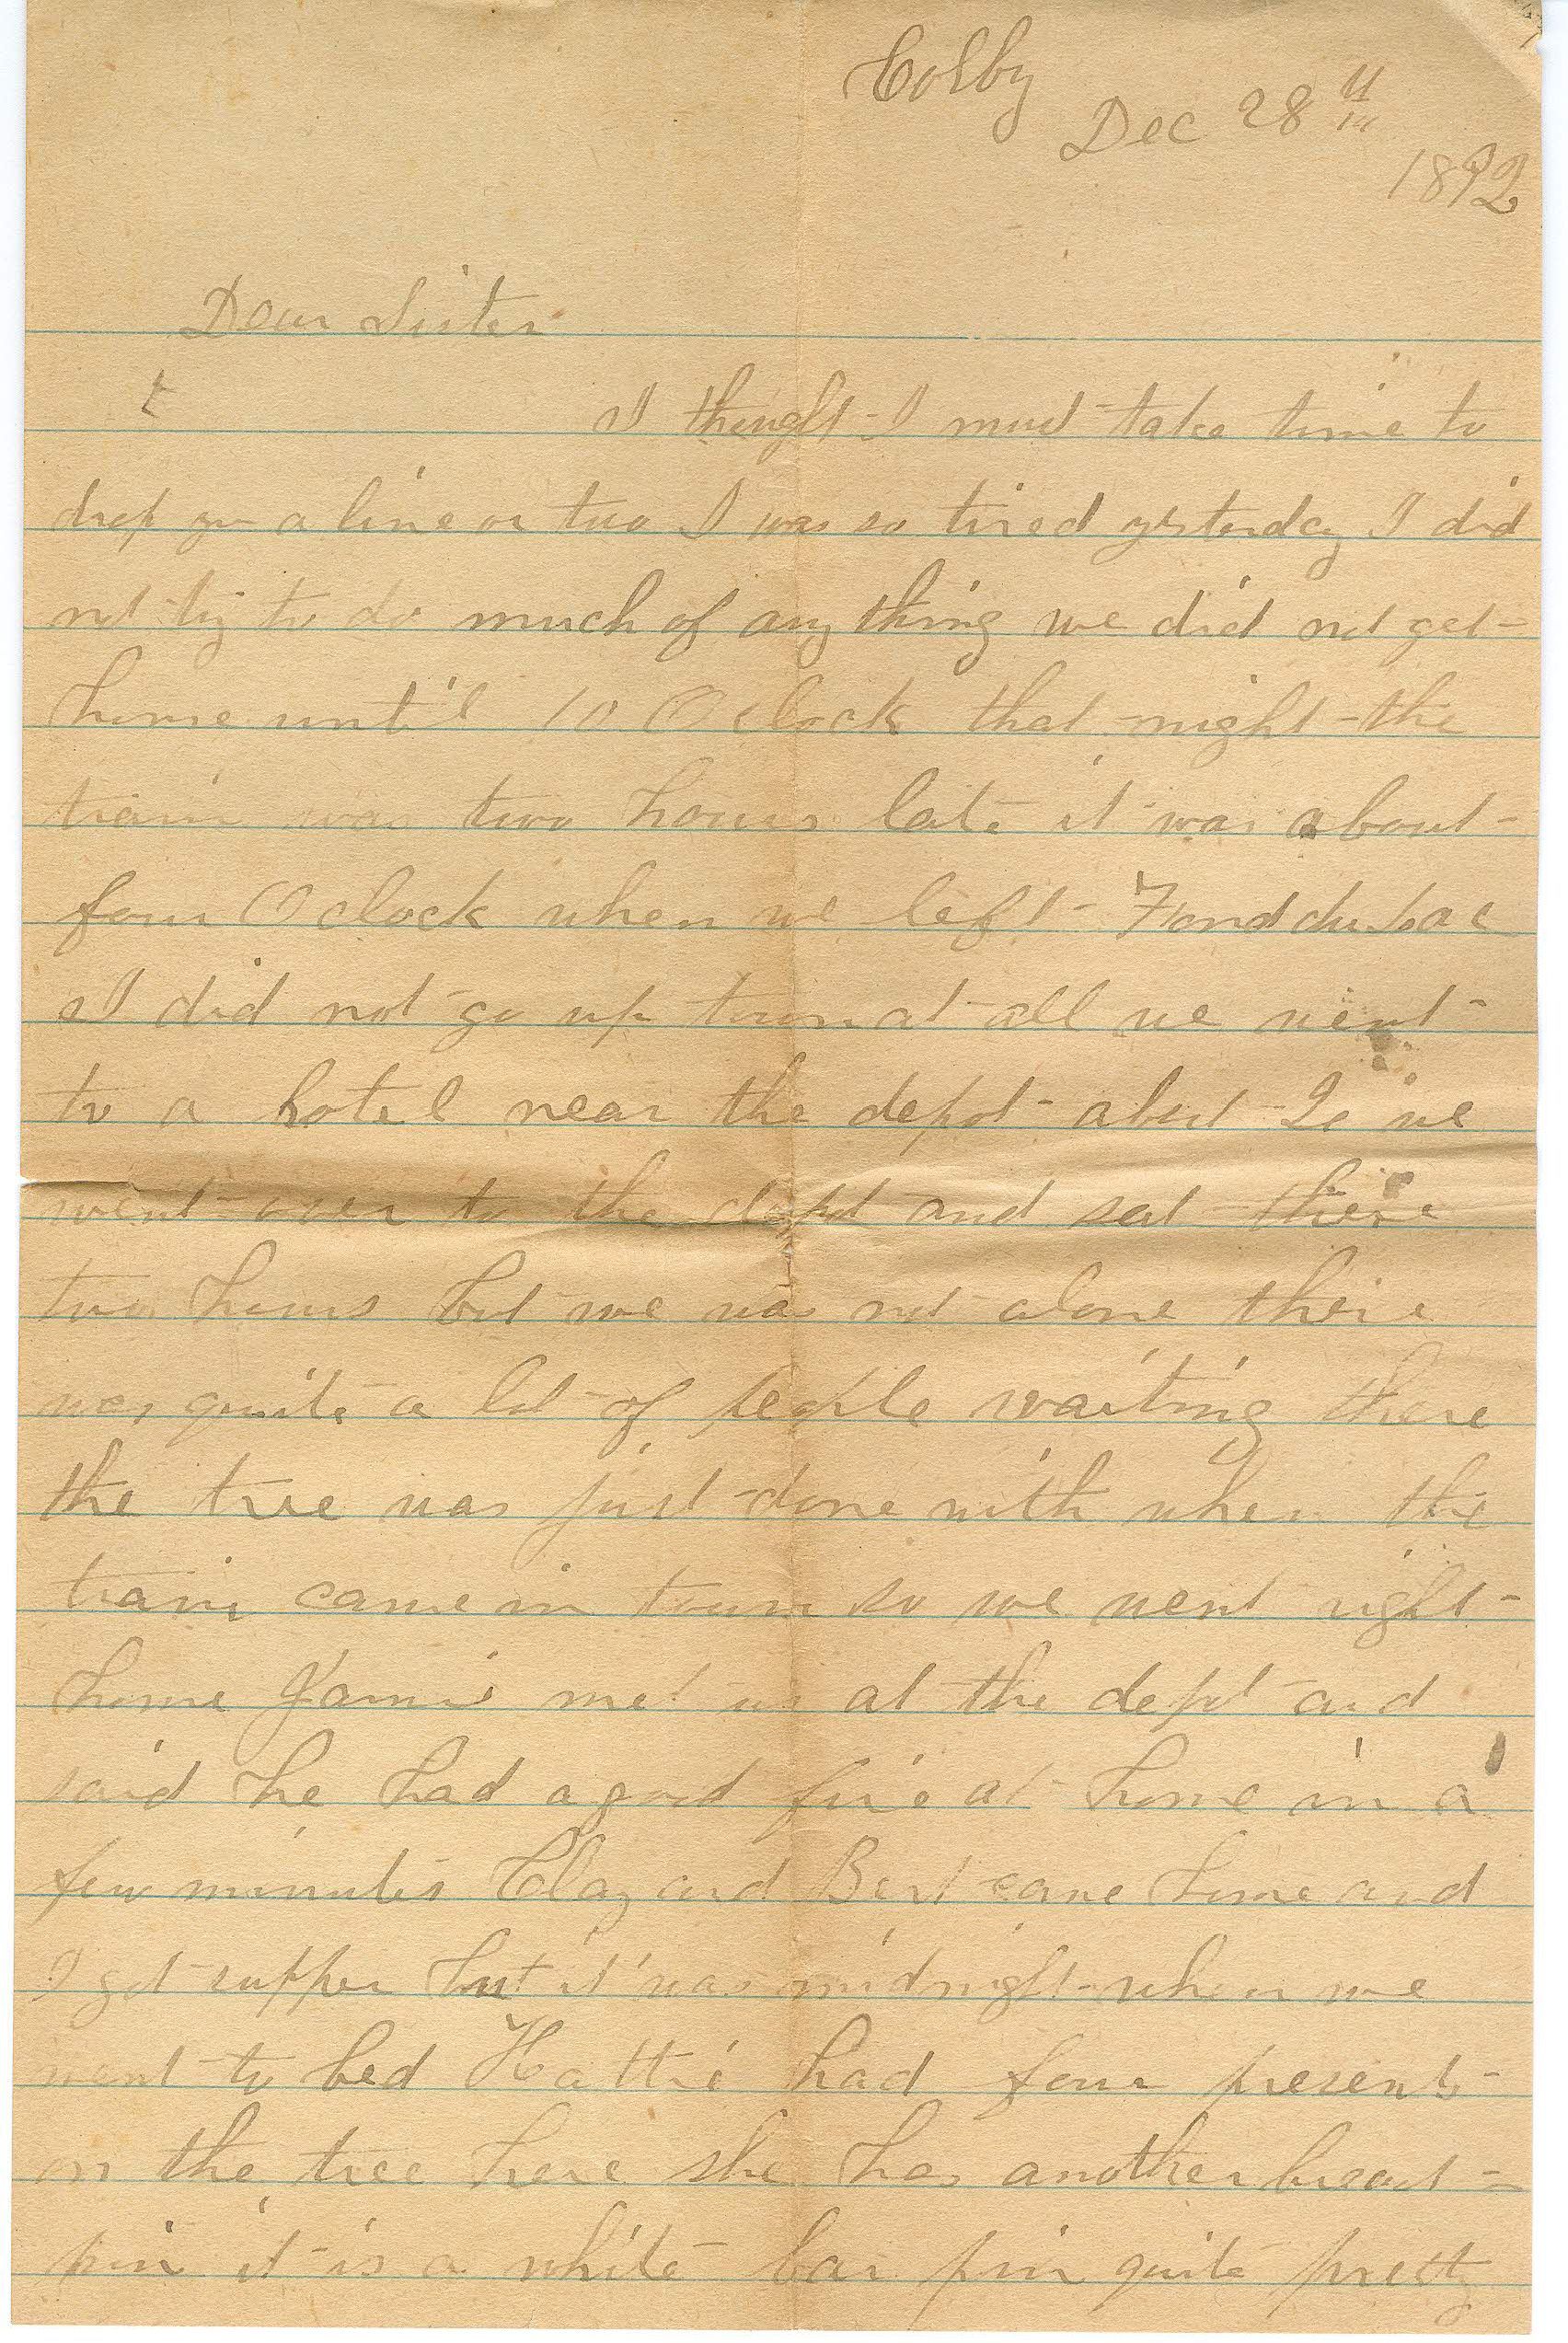 Colby
Dec 28th
1892
Dear Sister
I thought I must take time to
drop you a line or two I was so tired yesterday I did
not try to do much of any thing we did not get
home until 10 O clock that night the
train was two hours late it was about
four O clock when we left Fond du Lac
I did not go up town at all we went
to a hotel near the depot about we
went over to the depot and sat there
two hours but we was not alone there
was quite a lot of people waiting there
the tree was just done with when the
train came in town so we went right
home Jamie met us at the depot and
said he had a good fire at home in a
few minutes Clay and Bert came home and
I got supper but it was midnight when we
went to bed Hattie had four presents
on the tree here she has another breast
pin it is a white bar pin quite pretty